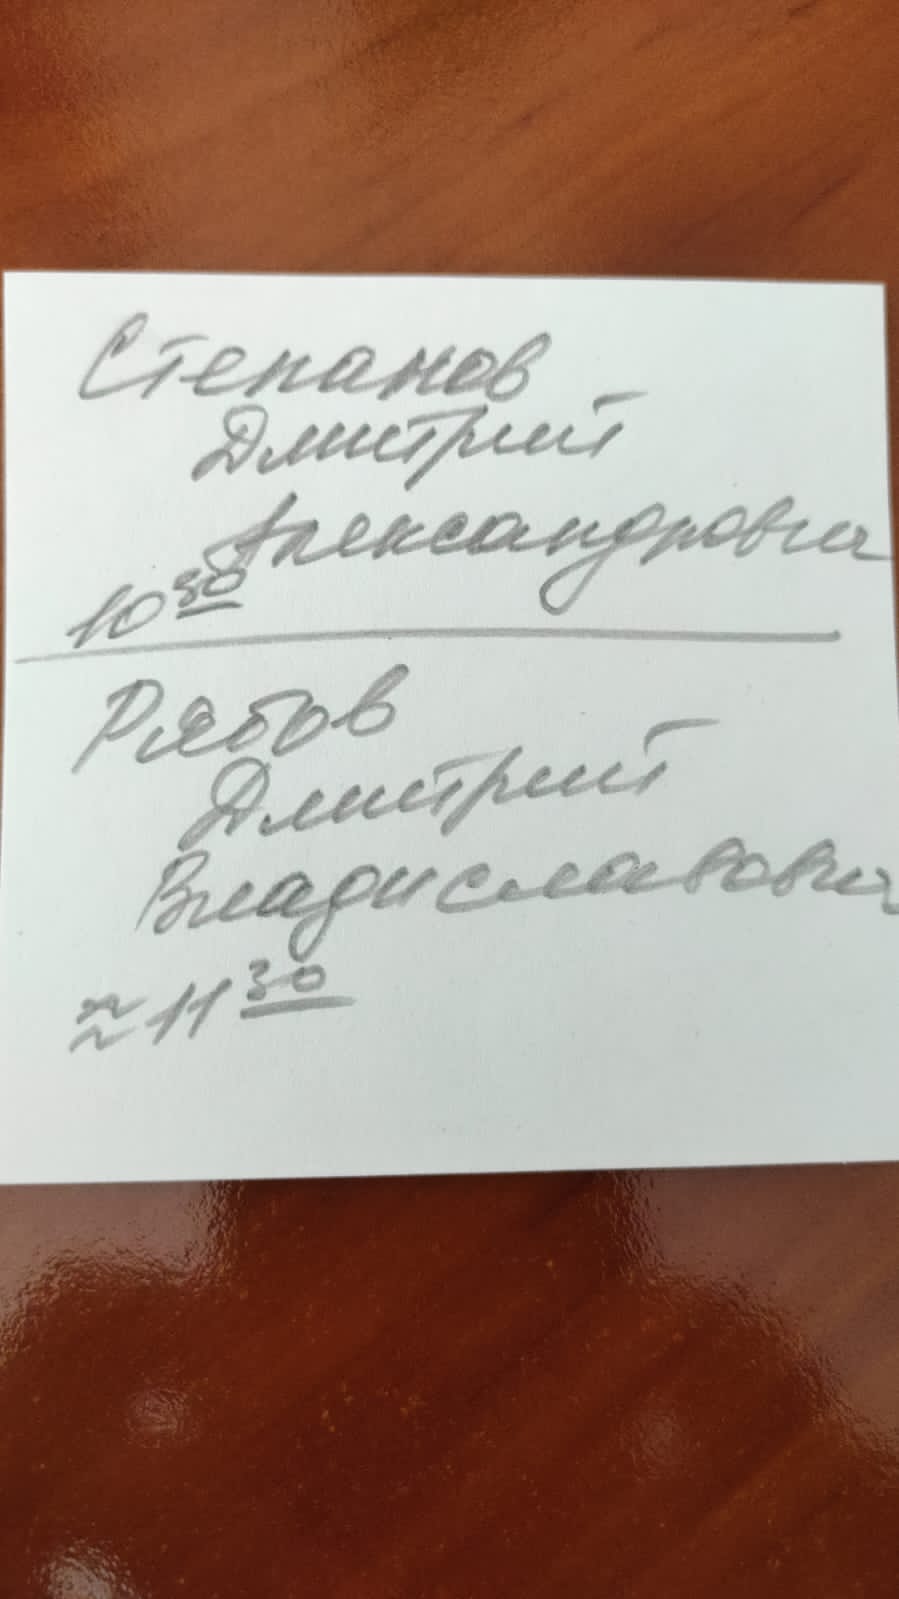 Степанов
Дмитрий
Александрович
10 30
Рябов
Дмитрий
Владиславович
≈ 11 30